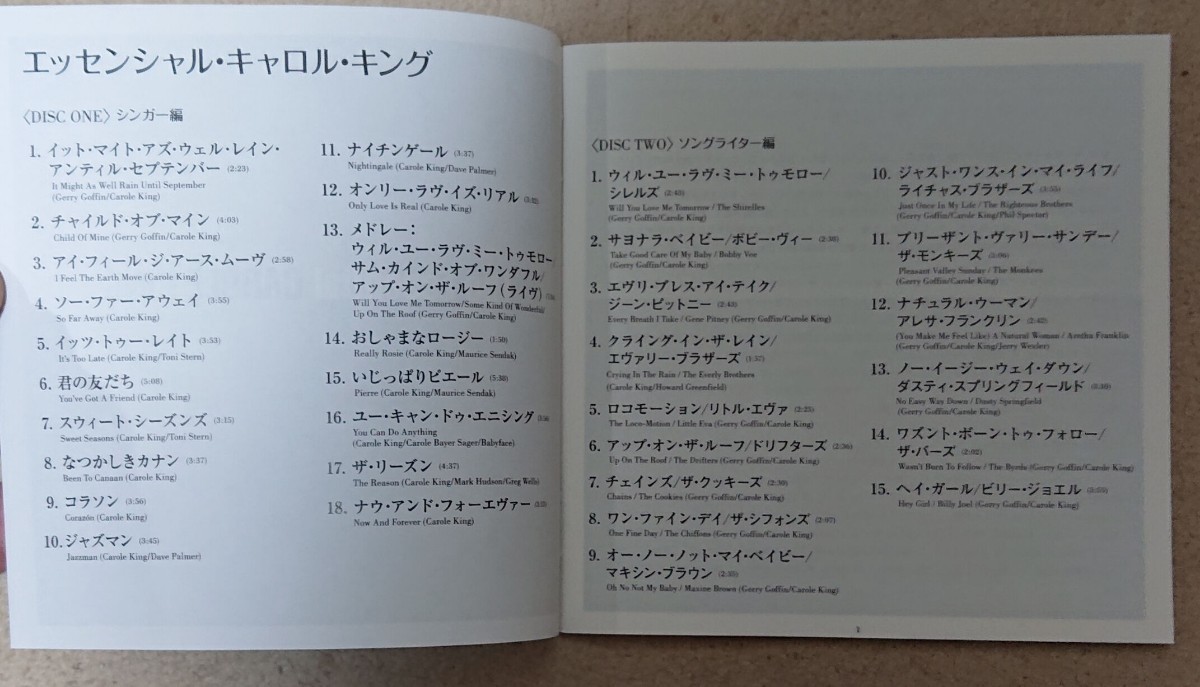 エッセンシャル・キャロル・キング
〈DISC ONE〉シンガー編
1. イット・マイト・アズ・ウェル・レイン・
アンティル・セプテンバー (2:23)
It Might As Well Rain Until September
(Gerry Goffin/Carole King)
2. チャイルド・オブ・マイン (4:03)
Child Of Mine (Gerry Goffin/Carole King)
3. アイ・フィール・ジ・アース・ムーヴ (2:58)
I Feel The Earth Move (Carole King)
4. ソー・ファー・アウェイ (3:55)
So Far Away (Carole King)
5. イッツ・トゥー・レイト (3:53)
It's Too Late (Carole King/Toni Stern)
6. 君の友だち (5:08)
You've Got A Friend (Carole King)
7. スウィート・シーズンズ (3:15)
Sweet Seasons (Carole King/Toni Stern)
8. なつかしきカナン (3:37)
Been To Canaan (Carole King)
9. コラソン (3:56)
Corazón (Carole King)
10. ジャズマン (3:45)
Jazzman (Carole King/Dave Palmer)
11. ナイチンゲール (3:37)
Nightingale (Carole King/Dave Palmer)
12. オンリー・ラヴ・イズ・リアル
Only Love Is Real (Carole King)
13. メドレー：
ウィル・ユー・ラヴ・ミー・トゥモロー
サム・カインド・オブ・ワンダフル/
アップ・オン・ザ・ルーフ（ライヴ）
Will You Love Me Tomorrow/Some Kind Of Wonderful/
Up On The Roof (Gerry Goffin/Carole King)
14. おしゃまなロージー (1:50)
Really Rosie (Carole King/Maurice Sendak)
15. いじっぱりピエール
Pierre (Carole King/Maurice Sendak)
16. ユー・キャン・ドゥ・エニシング
You Can Do Anything
(Carole King/Carole Bayer Sager/Babyface)
17. ザ・リーズン (4:37)
The Reason (Carole King/Mark Hudson/Greg Wells)
18. ナウ・アンド・フォーエヴァー
Now And Forever (Carole King)
〈DISC TWO〉ソングライター編
1. ウィル・ユー・ラヴ・ミー・トゥモロー/
シレルズ (2:43)
Will You Love Me Tomorrow / The Shirelles
(Gerry Goffin/Carole King)
2. サヨナラ・ベイビー/ボビー・ヴィー
Take Good Care Of My Baby / Bobby Vee
(Gerry Goffin/Carole King)
3. エヴリ・ブレス・アイ・テイク/
ジーン・ピットニー (2:43)
Every Breath I Take / Gene Pitney (Gerry Goffin/Carole King)
4. クライング・イン・ザ・レイン/
エヴァリー・ブラザーズ (1:57)
Crying In The Rain / The Everly Brothers
(Carole King/Howard Greenfield)
5. ロコモーション/リトル・エヴァ (2:25)
The Loco-Motion / Little Eva (Gerry Goffin/Carole King)
6. アップ・オン・ザ・ルーフ/ドリフターズ
Up On The Roof / The Drifters (Gerry Goffin/Carole King)
7. チェインズ/ザ・クッキーズ (2:30)
Chains / The Cookies (Gerry Goffin/Carole King)
8. ワン・ファイン・デイ/ザ・シフォンズ (2:07)
One Fine Day / The Chiffons (Gerry Goffin/Carole King)
9. オー・ノー・ノット・マイ・ベイビー/
マキシン・ブラウン
Oh No Not My Baby / Maxine Brown (Gerry Goffin/Carole King)
10. ジャスト・ワンス・イン・マイ・ライフ/
ライチャス・ブラザーズ (3:55)
Just Once In My Life / The Righteous Brothers
(Gerry Goffin/Carole King/Phil Spector)
11. プリーザント・ヴァリー・サンデー/
ザ・モンキーズ
Pleasant Valley Sunday / The Monkees
(Gerry Goffin/Carole King)
12. ナチュラル・ウーマン/
アレサ・フランクリン
(You Make Me Feel Like) A Natural Woman / Aretha Franklin
(Gerry Goffin/Carole King/Jerry Wexler)
13. ノー・イージー・ウェイ・ダウン/
ダスティ・スプリングフィールド
No Easy Way Down / Dusty Springfield
(Gerry Goffin/Carole King)
14. ワズント・ボーン・トゥ・フォロー/
ザ・バーズ (2:02)
Wasn't Born To Follow / The Byrds (Gerry Goffin/Carole King)
15. ヘイ・ガール/ビリー・ジョエル
Hey Girl / Billy Joel (Gerry Goffin/Carole King)